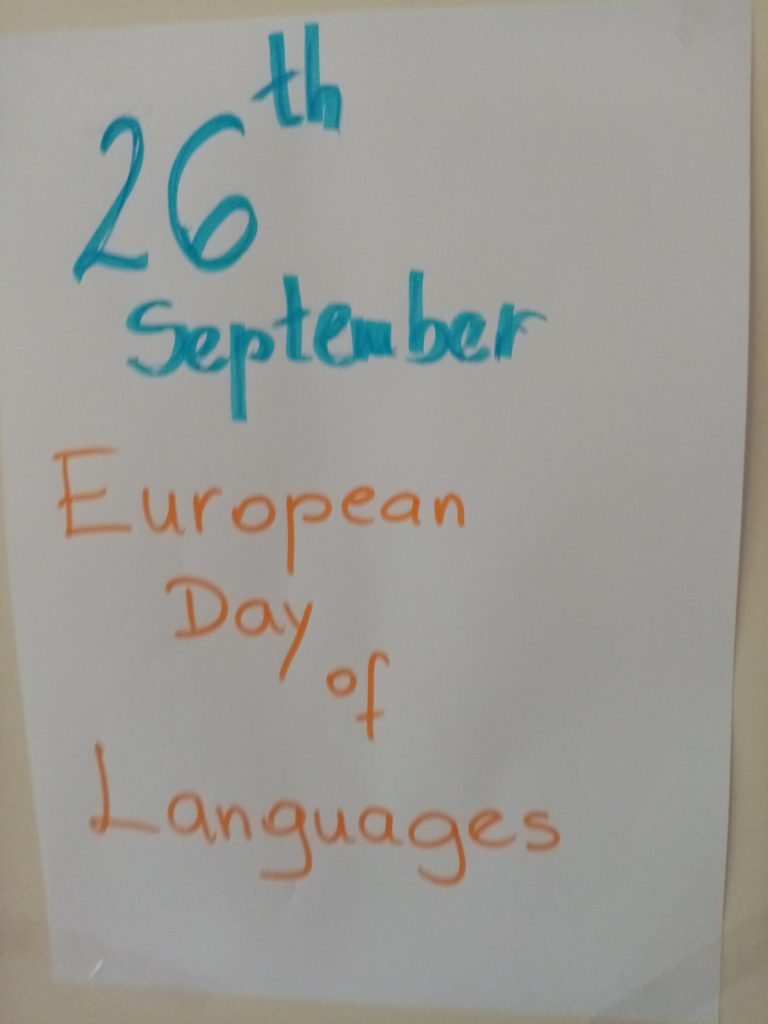 26th
September
European
Day
of
Languages